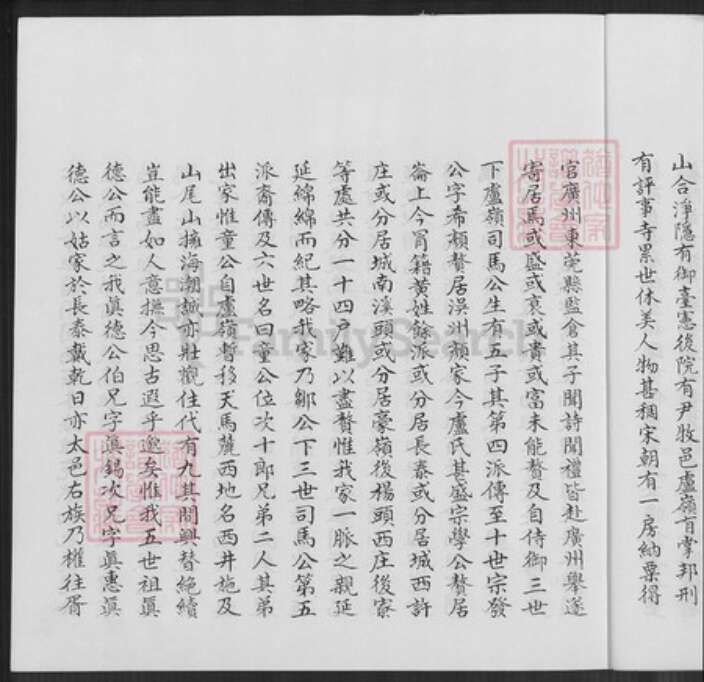 山合淨隱有御臺憲後院有尹牧邑盧嶺有掌邦刑
有評事寺累世休美人物甚稠宋朝有一房納粟得
官廣州東莞縣監倉其子聞詩聞禮皆赴廣州舉遂
寄居焉或盛或衰或貴或富未能贅及自侍御三世
下盧嶺司馬公生有五子其第四派傳至十世宗發
公字希頗贅居漠州顏家今盧氏甚盛宗學公贅居
崙上今冐籍黄姓餘派或分居長泰或分居城西許
庄或分居城南溪頭或分居豪嶺後楊頭西庄後寮
等處共分一十四戸難以盡贅惟我家一脈之親延
延綿綿而紀其略我家乃鄒公下三世司馬公第五
派裔傳及六世名曰童公位次十郎兄弟二人其弟
出家惟童公自盧嶺暫移天馬麓西地名西井施及
山尾山擁海潮誠亦壯觀住代有九其間興替絶續
豈能盡如人意撫今思古遐乎邈矣惟我五世祖眞
德公而言之我眞德公伯兄字眞錫次兄字眞惠眞
德公以姑家於長泰戴乾日亦太邑右族乃權往胥
FamilySearch